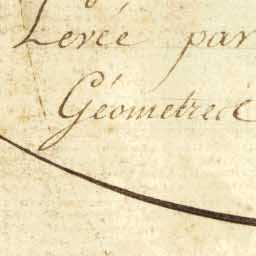 Levée par
Géometre